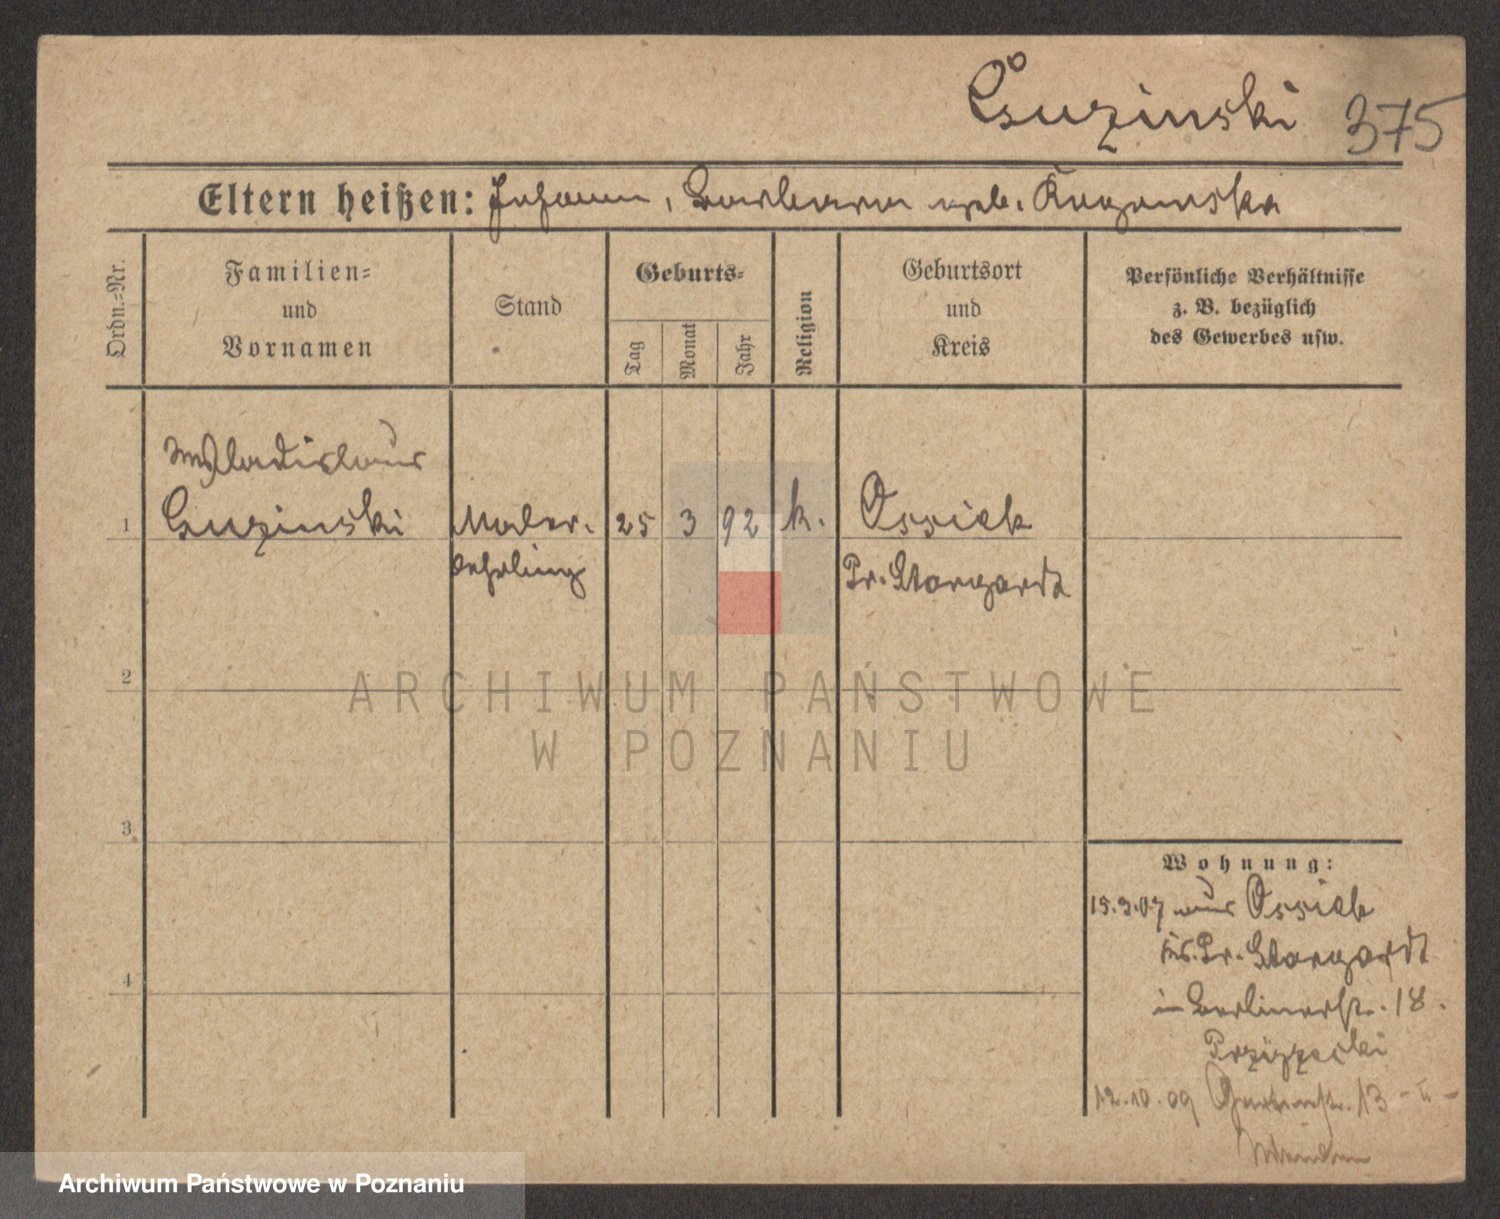 375
Eltern heißen: Johann, Barbara geb.
Ordn.-Nr.
Familien-
und
Vornamen
Stand
Geburts-
Tag
Monat
Jahr
Religion
Geburtsort
und
Kreis
Persönliche Verhältnisse
z. B. bezüglich
des Gewerbes usw.
Wladislaus
1 Maler- 25 3 92 k. Ossiek
lehrling Pr. Stargardt
2
ARCHIWUM PAŃSTWOWE
W POZNANIU
3
4
Wohnung:
15.3.07 aus Ossiek
Pr. Stargardt
in Berlinerstr. 18.
12.10.09 Gartenstr. 13
Archiwum Państwowe w Poznaniu